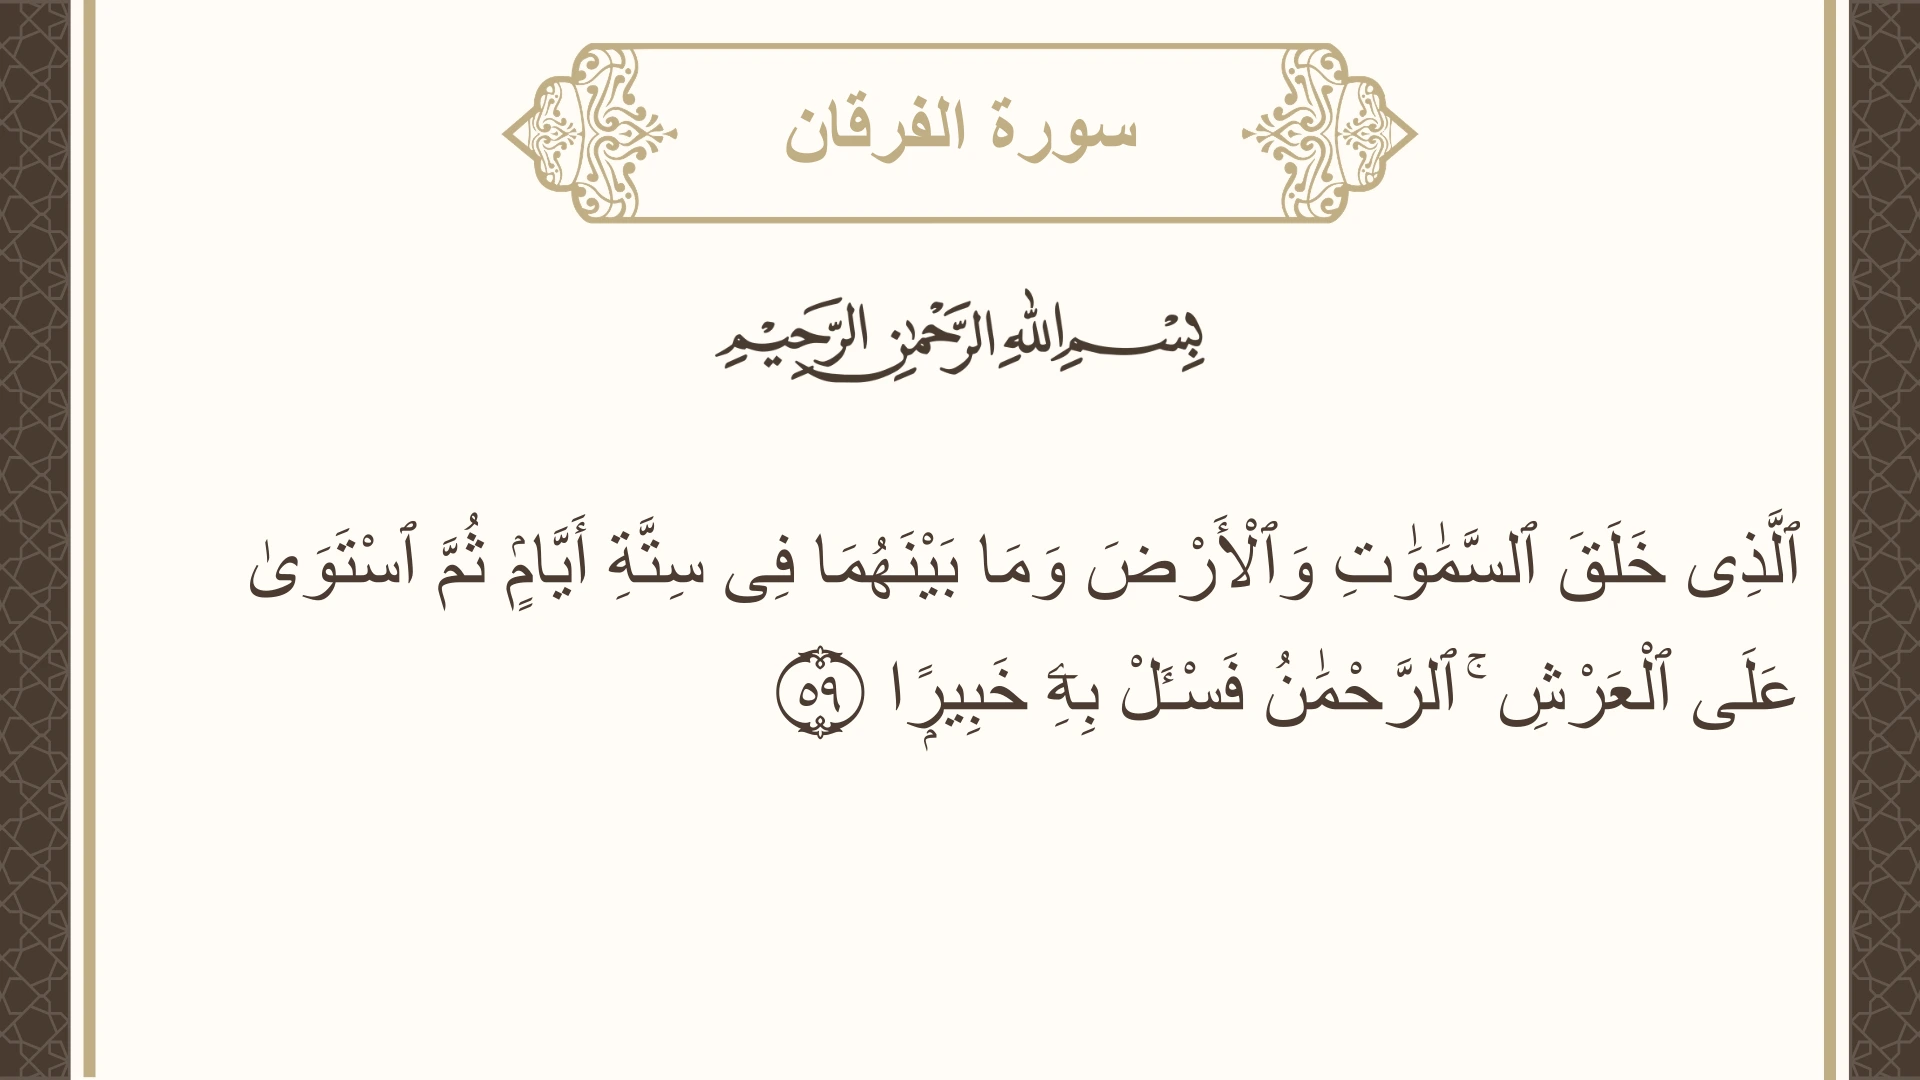 سورة الفرقان
بِسْمِ اللهِ الرَّحْمٰنِ الرَّحِيْمِ
ٱلَّذِى خَلَقَ ٱلسَّمَٰوَٰتِ وَٱلْأَرْضَ وَمَا بَيْنَهُمَا فِى سِتَّةِ أَيَّامٍۢ ثُمَّ ٱسْتَوَىٰ
عَلَى ٱلْعَرْشِ ۚ ٱلرَّحْمَٰنُ فَسْـَٔلْ بِهِۦ خَبِيرًۭا ۝٥٩